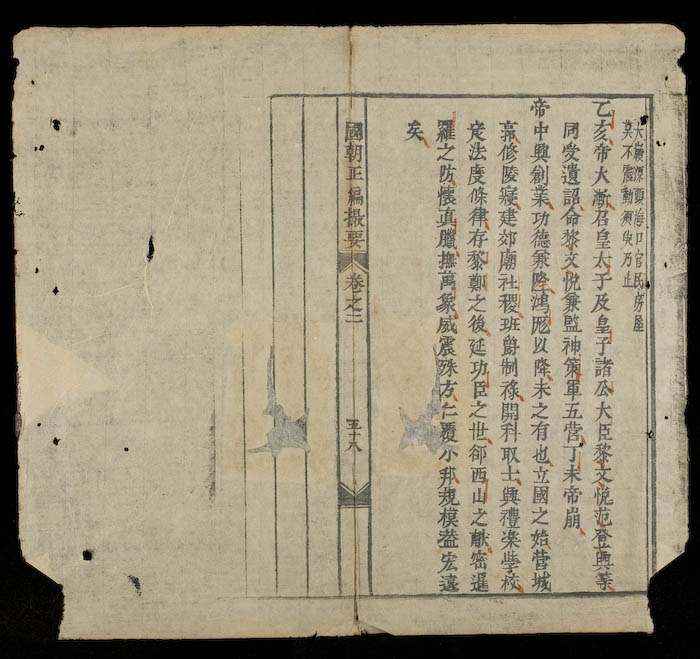 大嶺源頭海口官民房屋
莫不震動須臾乃止
乙亥帝大漸召皇太子及皇子諸公大臣黎文悅范登興等
同受遺詔命黎文悅兼監神策軍五營丁未帝崩
帝中興創業功德兼隆鴻厖以降未之有也立國之始營城
郭修陵寢建郊廟社稷班爵制祿開科取士興禮楽學校
定法度條律存黎鄭之後延功臣之世卻西山之献密暹
羅之防懷真臘撫萬象威震殊方仁覆小邦規模葢宏遠
矣
國朝正編撮要
卷之二
五十八